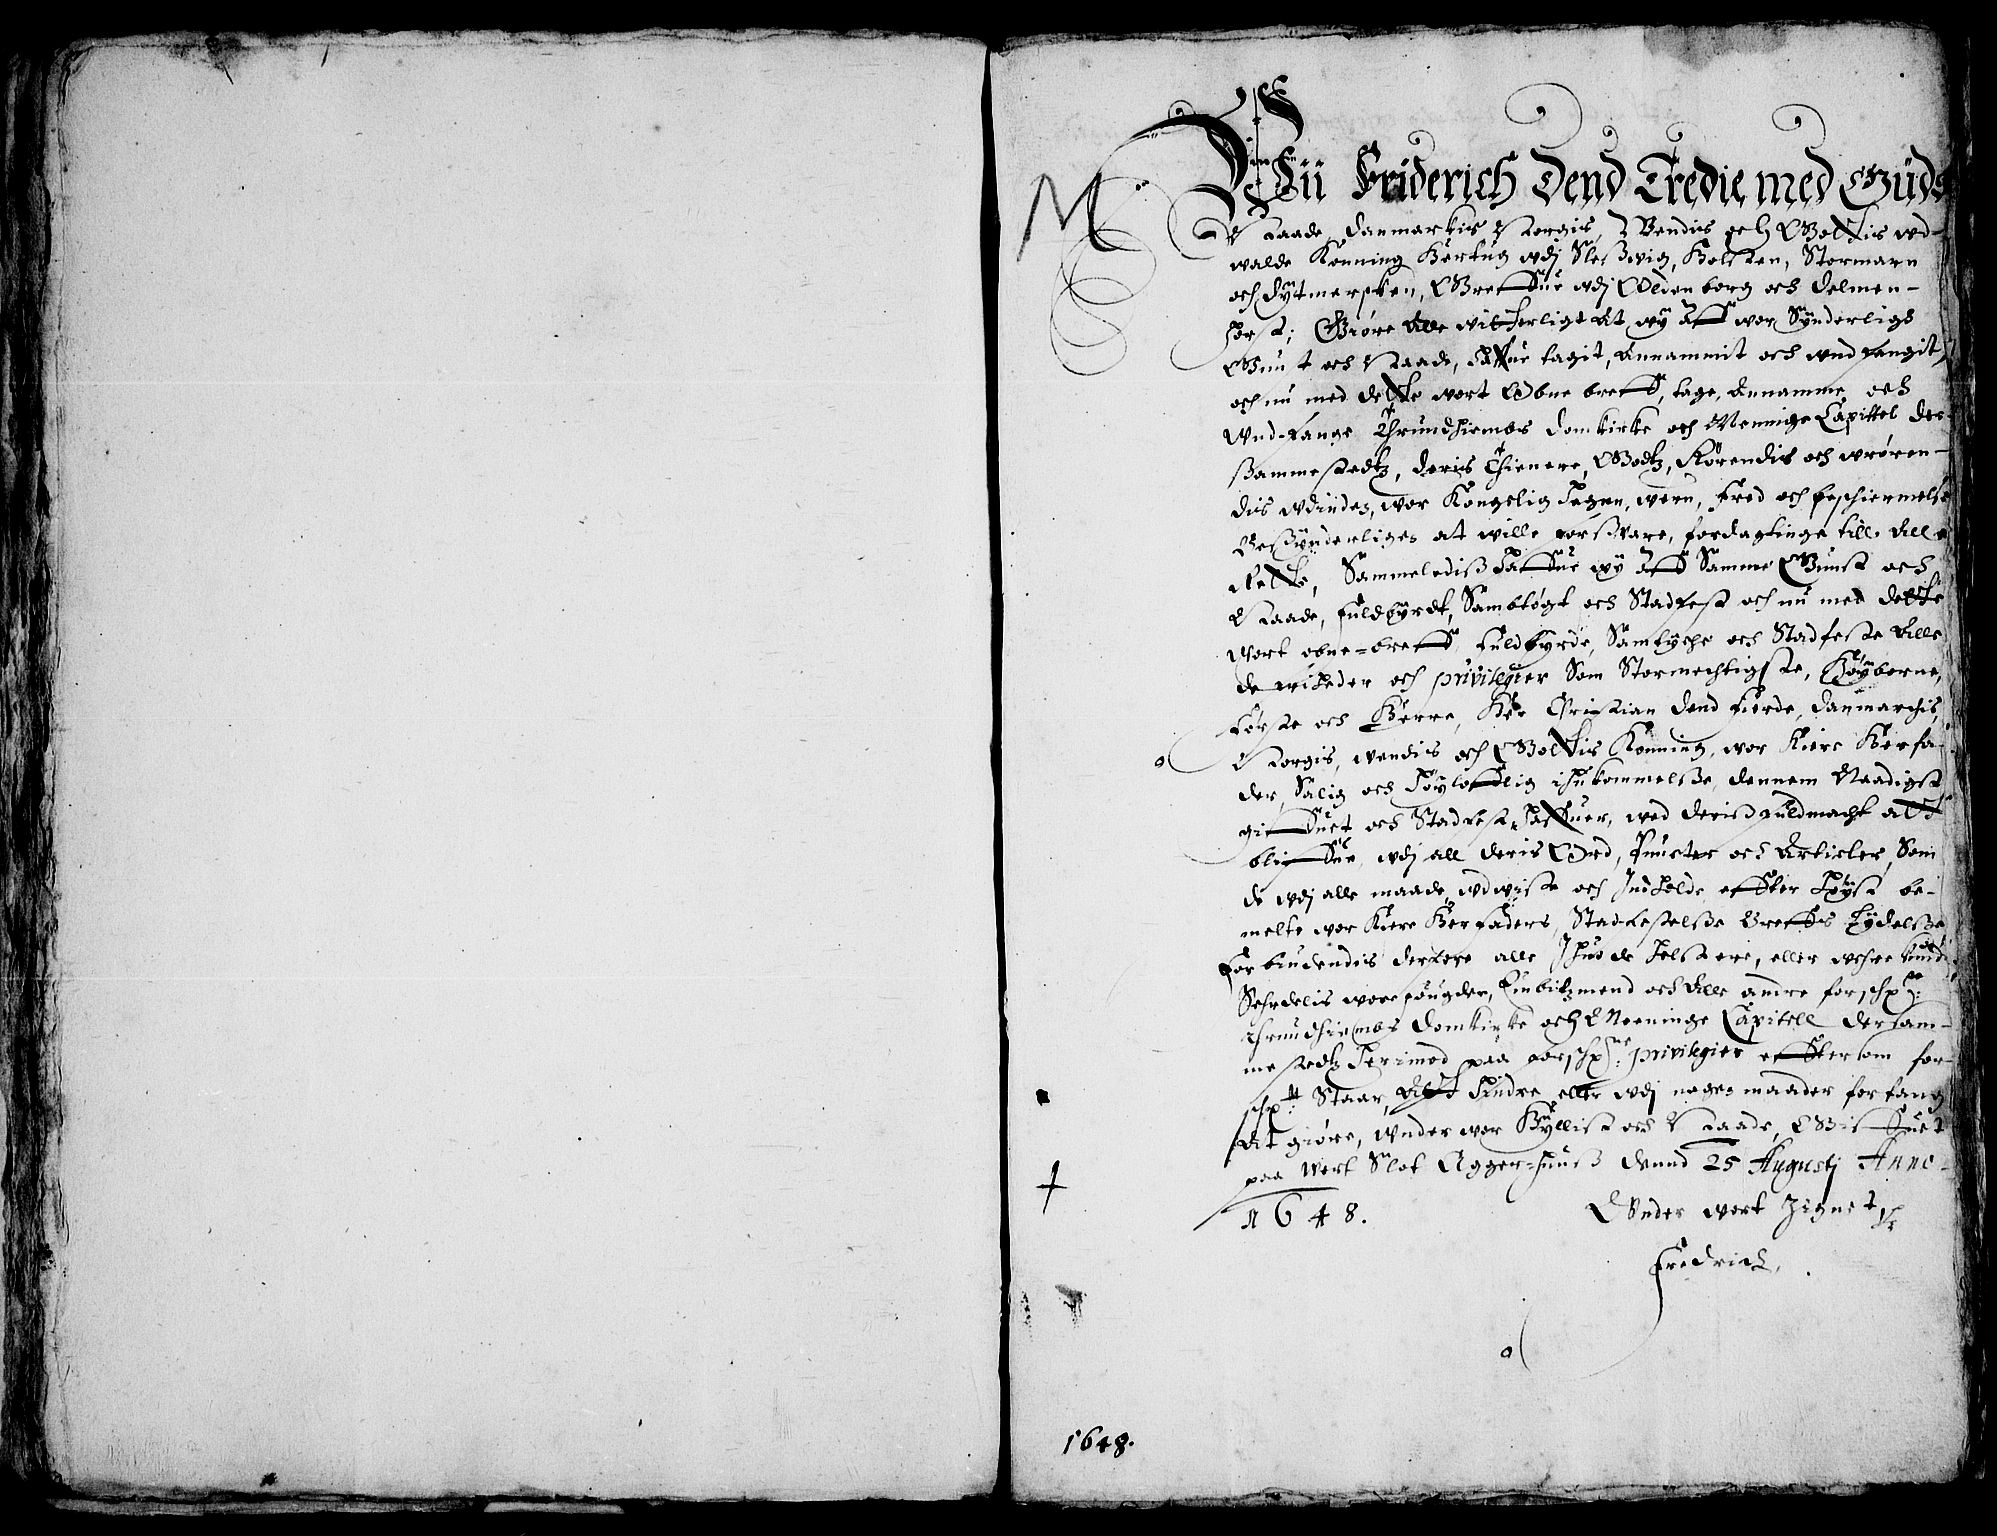 M
Wii Friderich Dend Tredie med Gudz
Naade, Danmarkis Norgis, Vendis och Gottis ud-
walde Konning Hertug udj Sleßwig, Holsten, Stormarn
och Dytmersken, Greffue udj Oldenborg och Delmen-
horst; Giøre alle witterligt at wy aff wor Synderlige
Gunst och Naade, haffue tagit, Annammit och undfangit
och nu med dette wort Obne breff, tage, Annamme och
Undfange Thrundhiembs Domkirke och Menige Capittel der
ßammestedtz, deris Thienere, Godtz, Rørendis och urøren-
dis udinden, wor Kongelig Hegen, wern, fred och beschermelse
Besynderligen at wille forsware, fordagtinge till alle
Rette, Sammelediß haffue wy aff Samme Gunst och
Naade, fuldbyrdt, Sambtøgt och Stadfest och nu med dette
wort obne-breff fuldbyrde, Samtyche och Stadfeste alle
de friheder och privilegier Som Stormechtigste, Høyborne,
Første och Herre, Her Christian dend fierde, Danmarchis,
Norgis, wendis och Gottis Konning, wor Kiere Herfa-
der, Salig och høyloflig ihukommelße, dennem Naadigst
giffuet och Stadfest haffuer, wed deris fuldmacht att
bliffue, udj all deris Ord, Puncter och Articler, Som
de udj alle maade udwise och Indholde effter høyst be-
melte wor Kiere Herfaders, Stadfestelße Breffs Lydelße,
forbiudendis derfore alle Ihuo de helst ere, eller were kund
Serdelis wore fougder, Embitzmend och alle andre forschne:
Thrundhiembs Domkirke och Meninge Capitell dersam-
mestedtz herimod paa forschne: privilegier effter som for-
schtt: Staar, att hindre eller udj nogen maader forfang
At giøre, under wor Hyllist och Naade, Giffuet
paa wort Slot Aggerhuuß dennd 25 Augustj Anno
1648. Under wort Zignet
Fredrich.
1648.